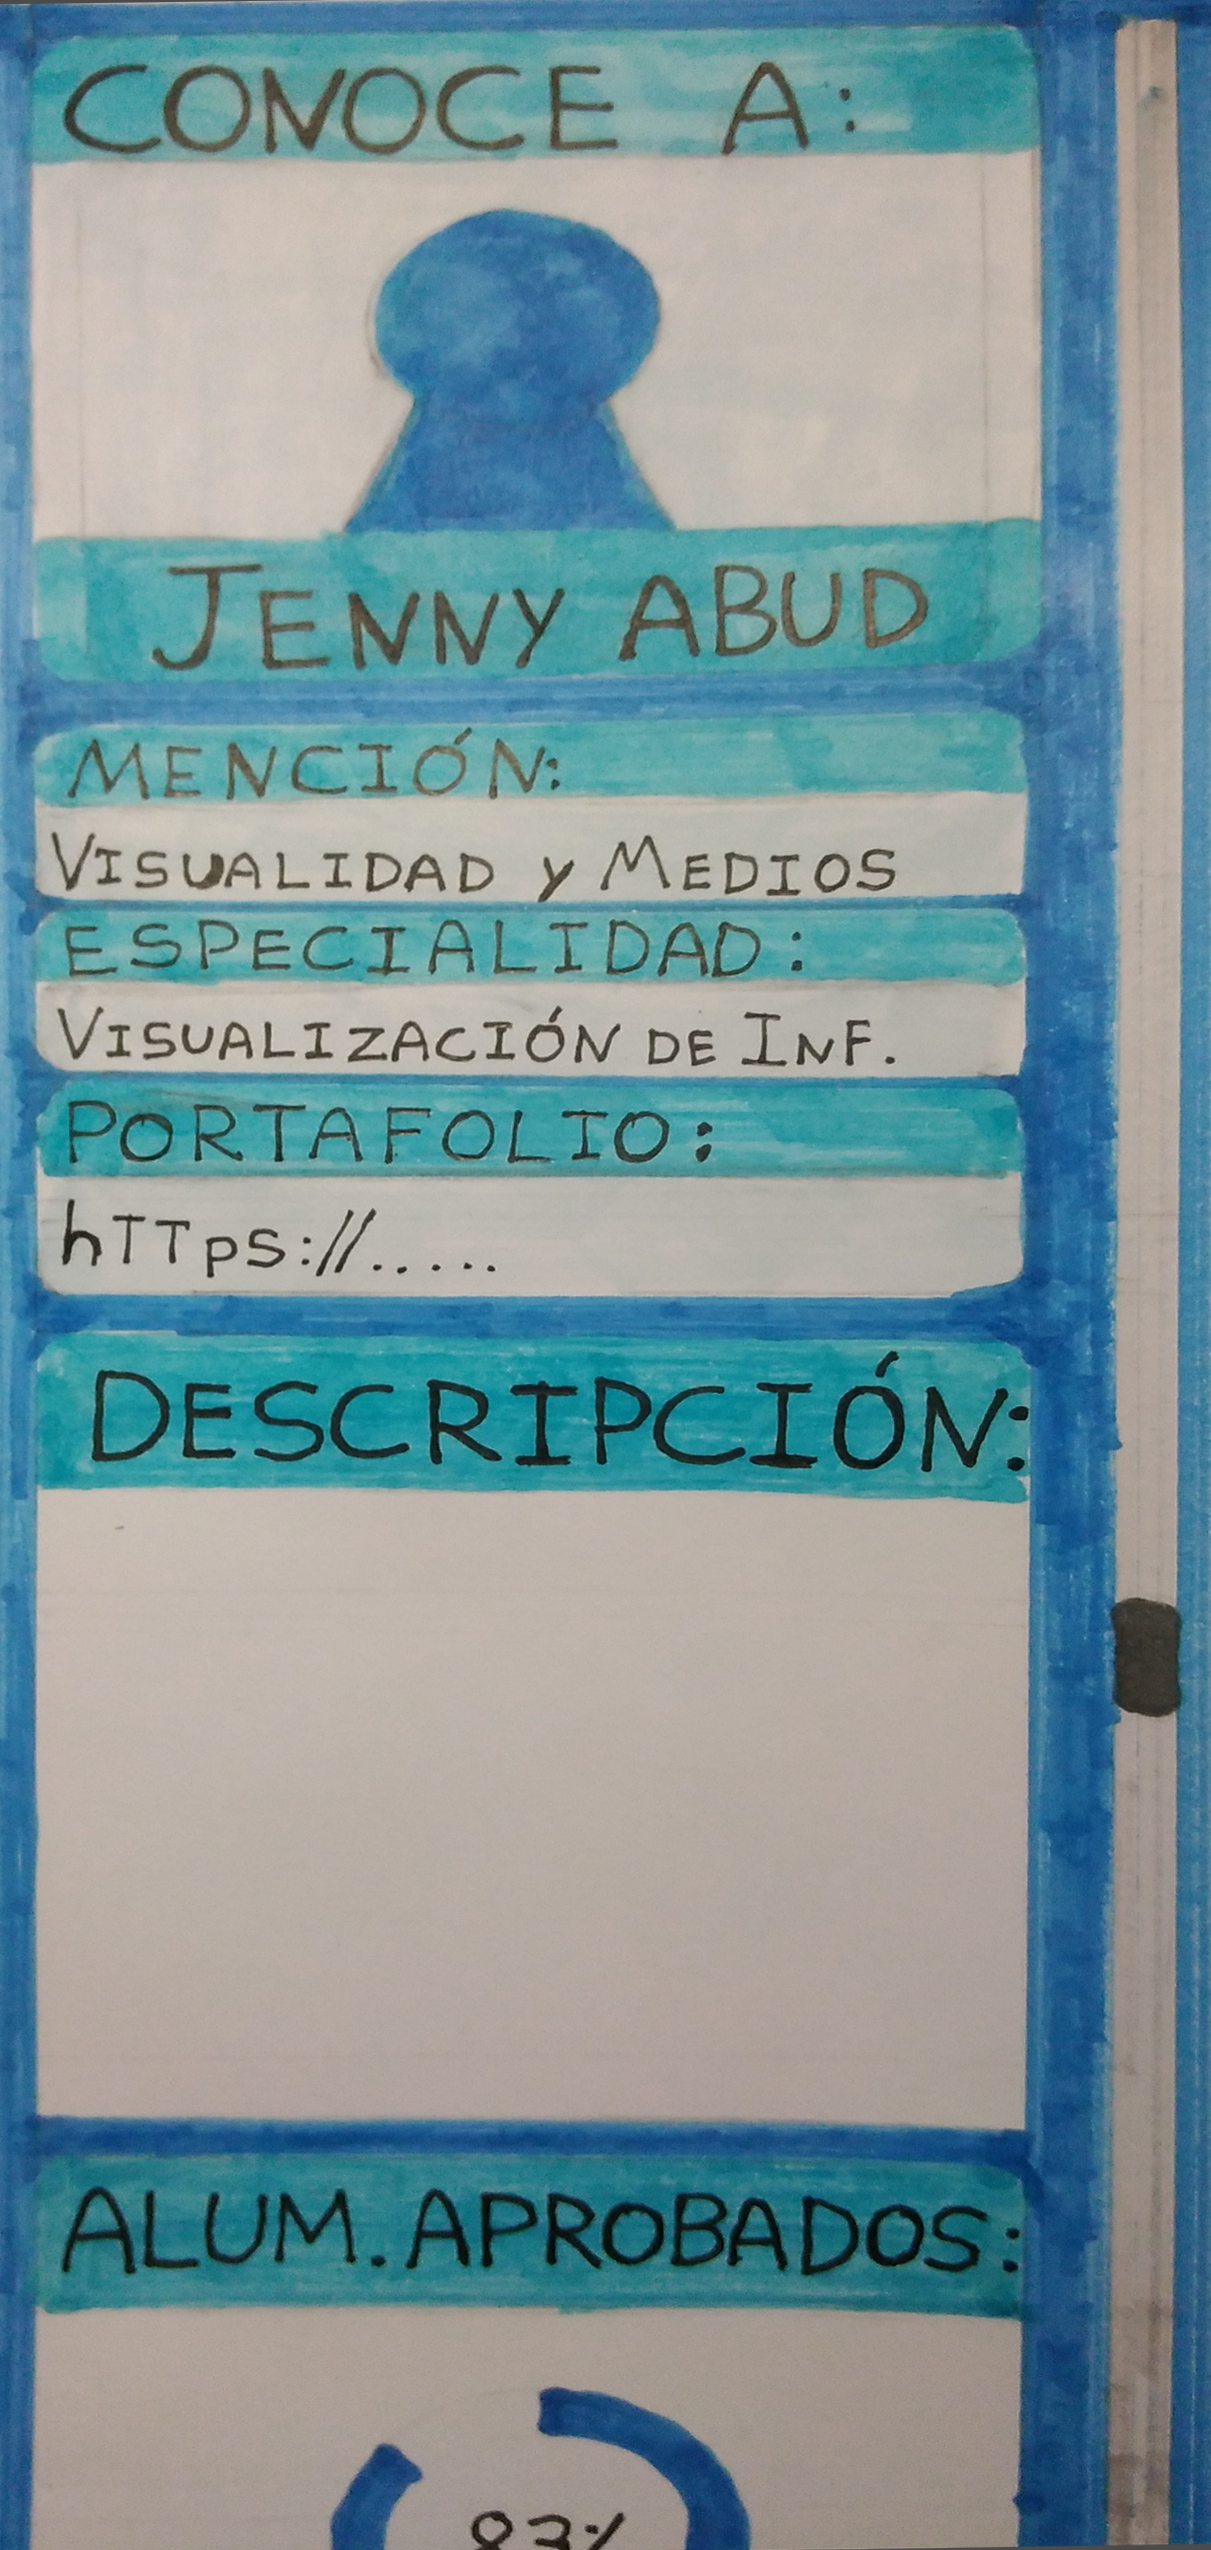 CONOCE A:
JENNY ABUD
MENCIÓN:
VISUALIDAD y MEDIOS
ESPECIALIDAD:
VISUALIZACIÓN DE INF.
PORTAFOLIO:
hTTps://.....
DESCRIPCIÓN:
ALUM. APROBADOS:
83%